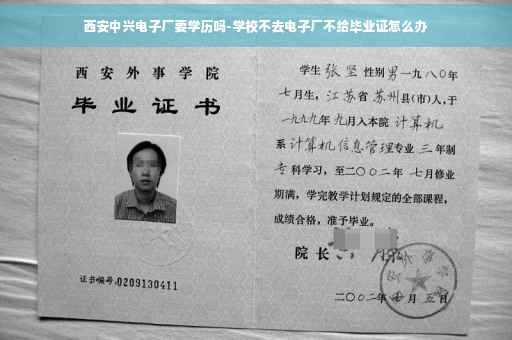 西安中兴电子厂要学历吗-学校不去电子厂不给毕业证怎么办
西安外事学院
毕业证书
证书编号:0209130411
学生 张坚 性别 男 一九八〇年
七月生, 江苏省 苏州 县(市)人,于
一九九九年 九月入本院 计算机
系 计算机信息管理 专业 三 年制
专科学习,至二〇〇二年 七月修业
期满,学完教学计划规定的全部课程,
成绩合格,准予毕业。
院长
二〇〇二年 七月 五日